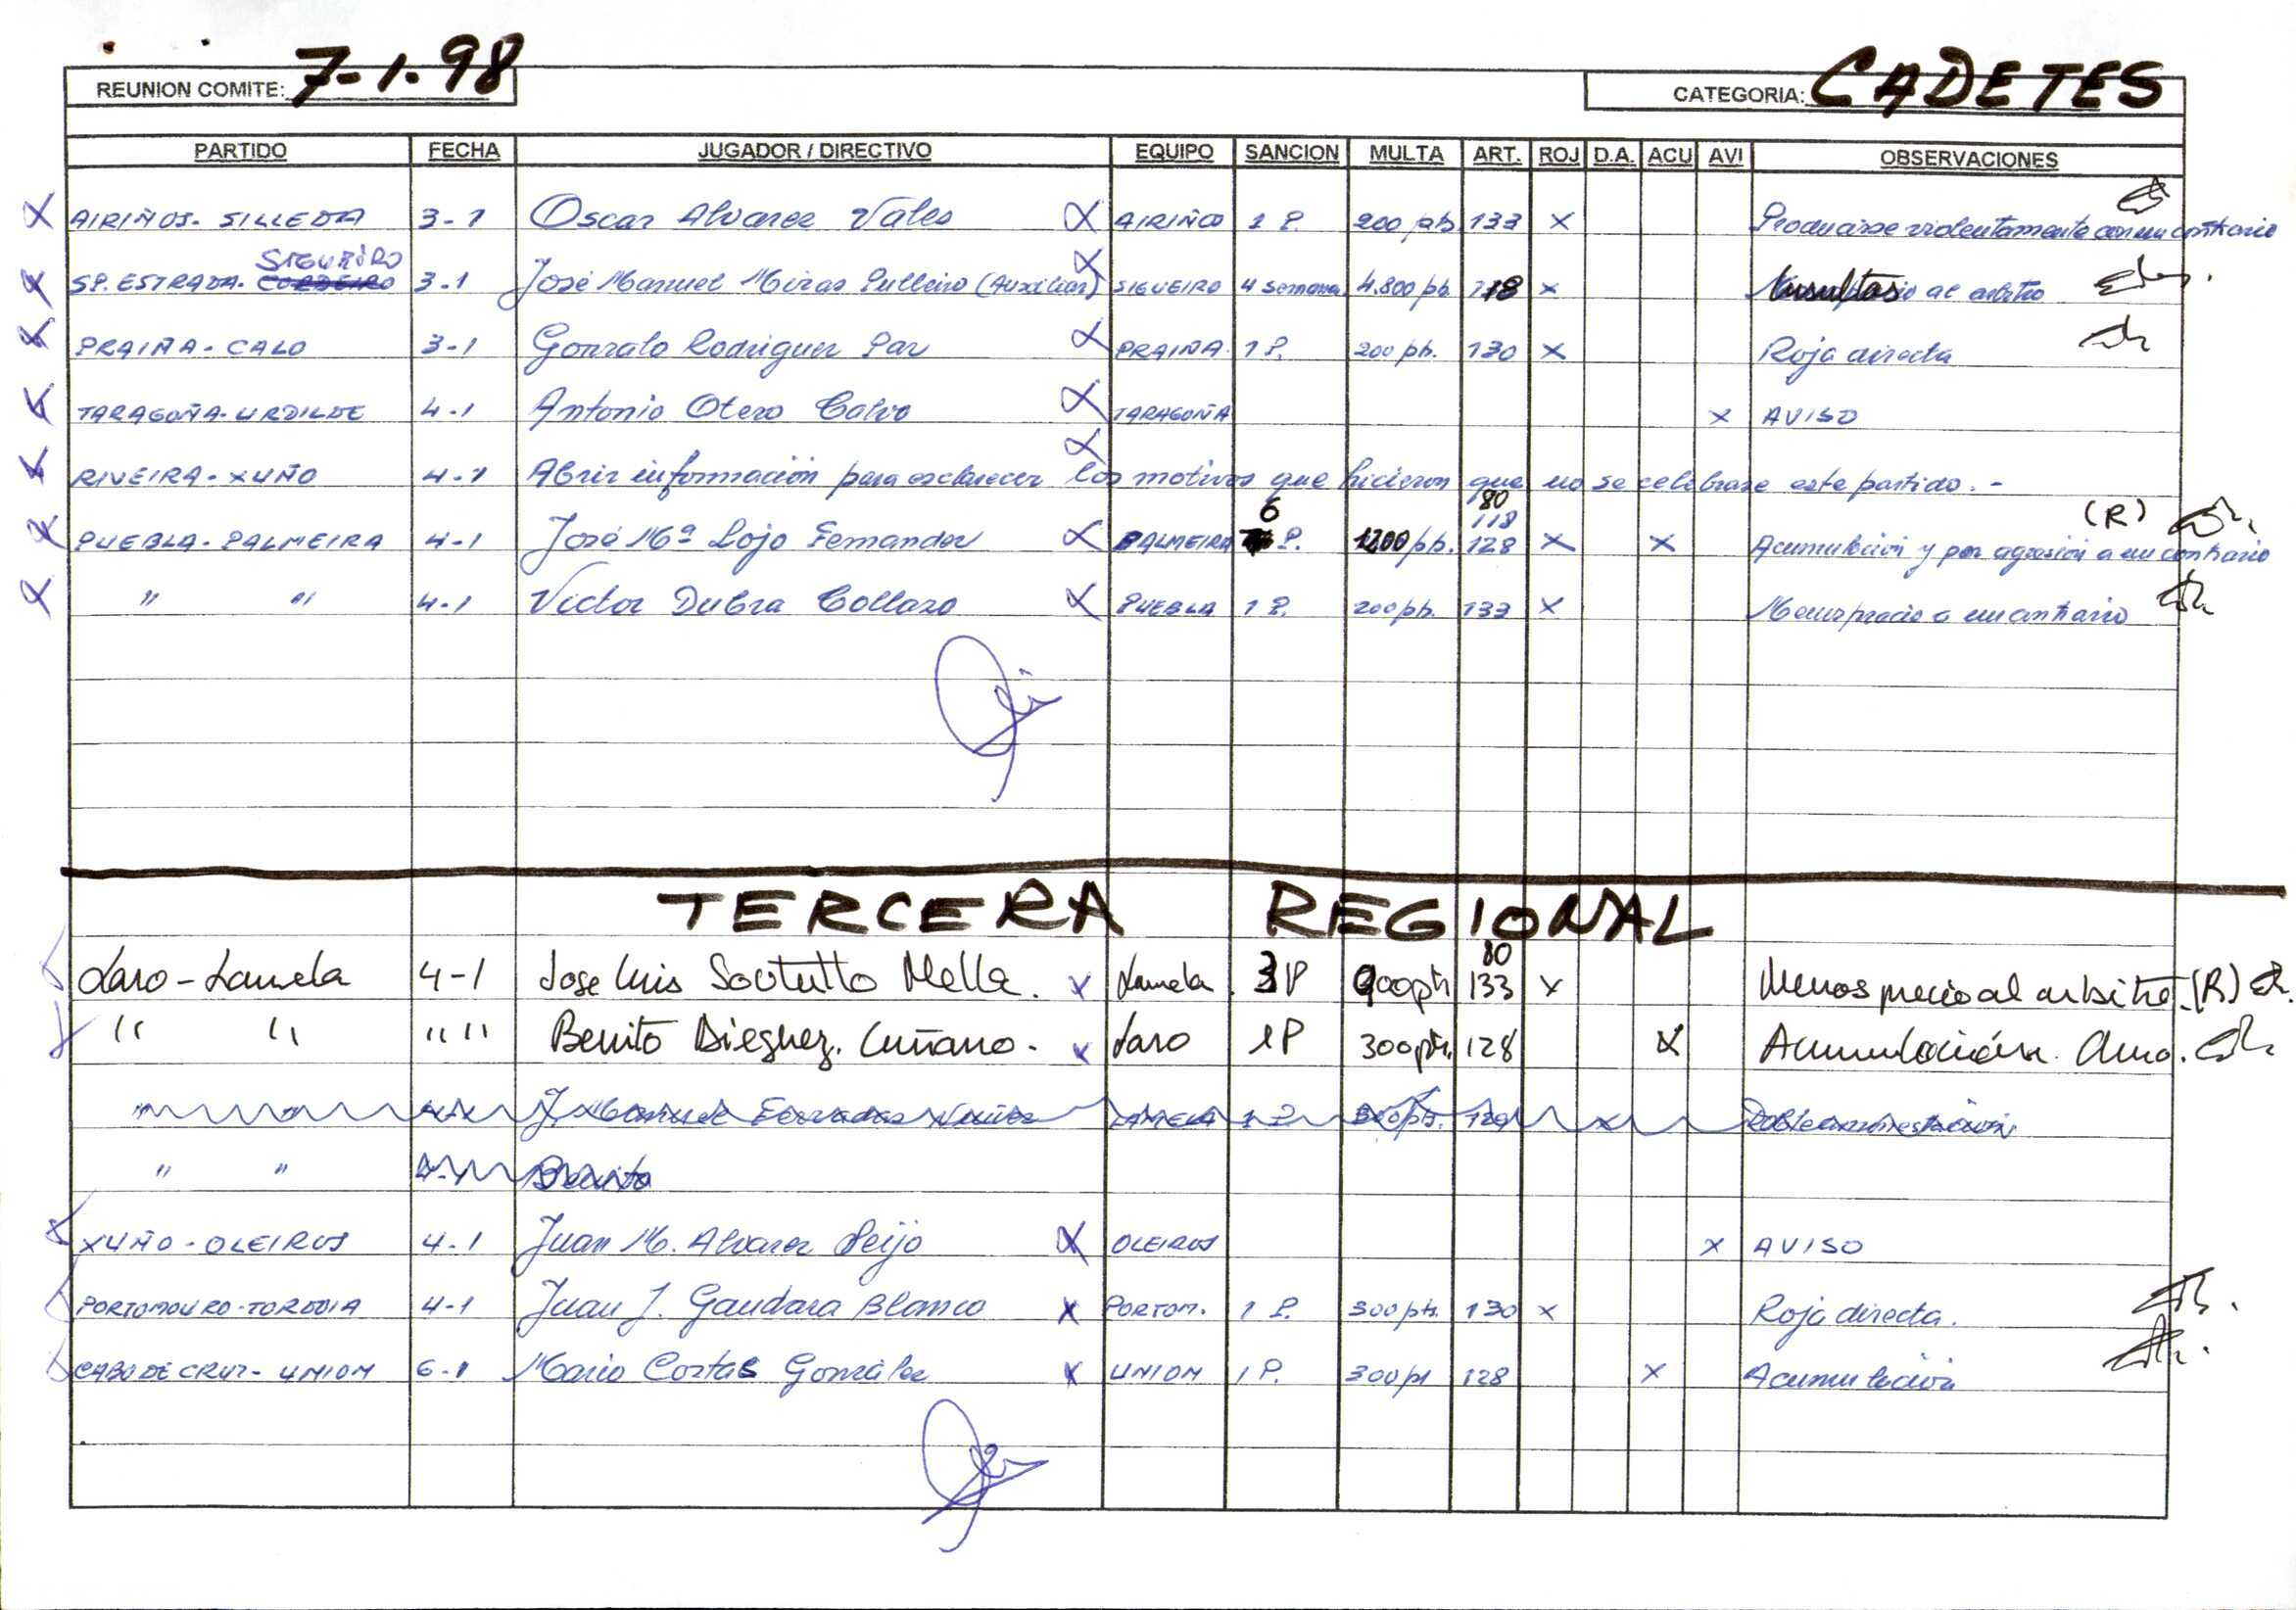 REUNION COMITE: 7-1-98 CATEGORIA: CADETES
PARTIDO FECHA JUGADOR / DIRECTIVO EQUIPO SANCION MULTA ART. ROJ D.A. ACU AVI OBSERVACIONES
AIRIÑOS - SILLEDA 3-1 Oscar Alvarez Vales AIRIÑOS 1 P. 200 pts 133 x Producirse violentamente con un contrario
SIGUEIRO
SP. ESTRADA - CORDEIRO 3-1 José Manuel Miras (Auxiliar) SIGUEIRO 4 semana 4.800 pts. 118 x Insultos al arbitro
PRAIÑA - CALO 3-1 Gonzalo Rodriguez Paz PRAIÑA 1 P. 200 pts. 130 x Roja directa
TARAGOÑA - URDILDE 4-1 Antonio Otero Calvo TARAGOÑA x AVISO
RIVEIRA - XUÑO 4-1 Abrir información para esclarecer los motivos que hicieron que no se celebrase este partido. -
6 80 118 (R)
PUEBLA - PALMEIRA 4-1 José Mª Lojo Fernandez PALMEIRA P. 1200 pts. 128 x x Acumulación y por agresión a un contrario
" " 4-1 Victor Dubra Collazo PUEBLA 1 P. 200 pts. 133 x Menosprecio a un contrario
TERCERA REGIONAL
80
Laro - Lamela 4-1 Jose Luis Mella. x Lamela 3 P 900 pts 133 x Menosprecio al arbitro (R)
" " " " Benito Dieguez x Laro 1P 300 pts. 128 x Acumulación
" " LAMELA 1 P 129 x Doble amonestación
" " 4-1 Benito
XUÑO - OLEIROS 4-1 Juan M. Alvarez Seijo OLEIROS x AVISO
PORTOMOURO - TORDOIA 4-1 Juan J. Gandara Blanco x PORTOM. 1 P. 300 pts. 130 x Roja directa.
CABO DE CRUZ - UNION 6-1 Mario Costas González x UNION 1 P. 300 pt 128 x Acumulación